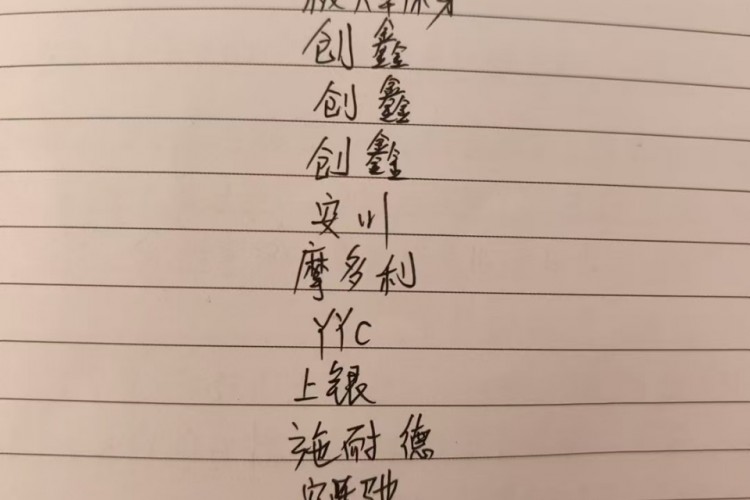 创鑫
创鑫
创鑫
安川
摩多利
YYC
上银
施耐德